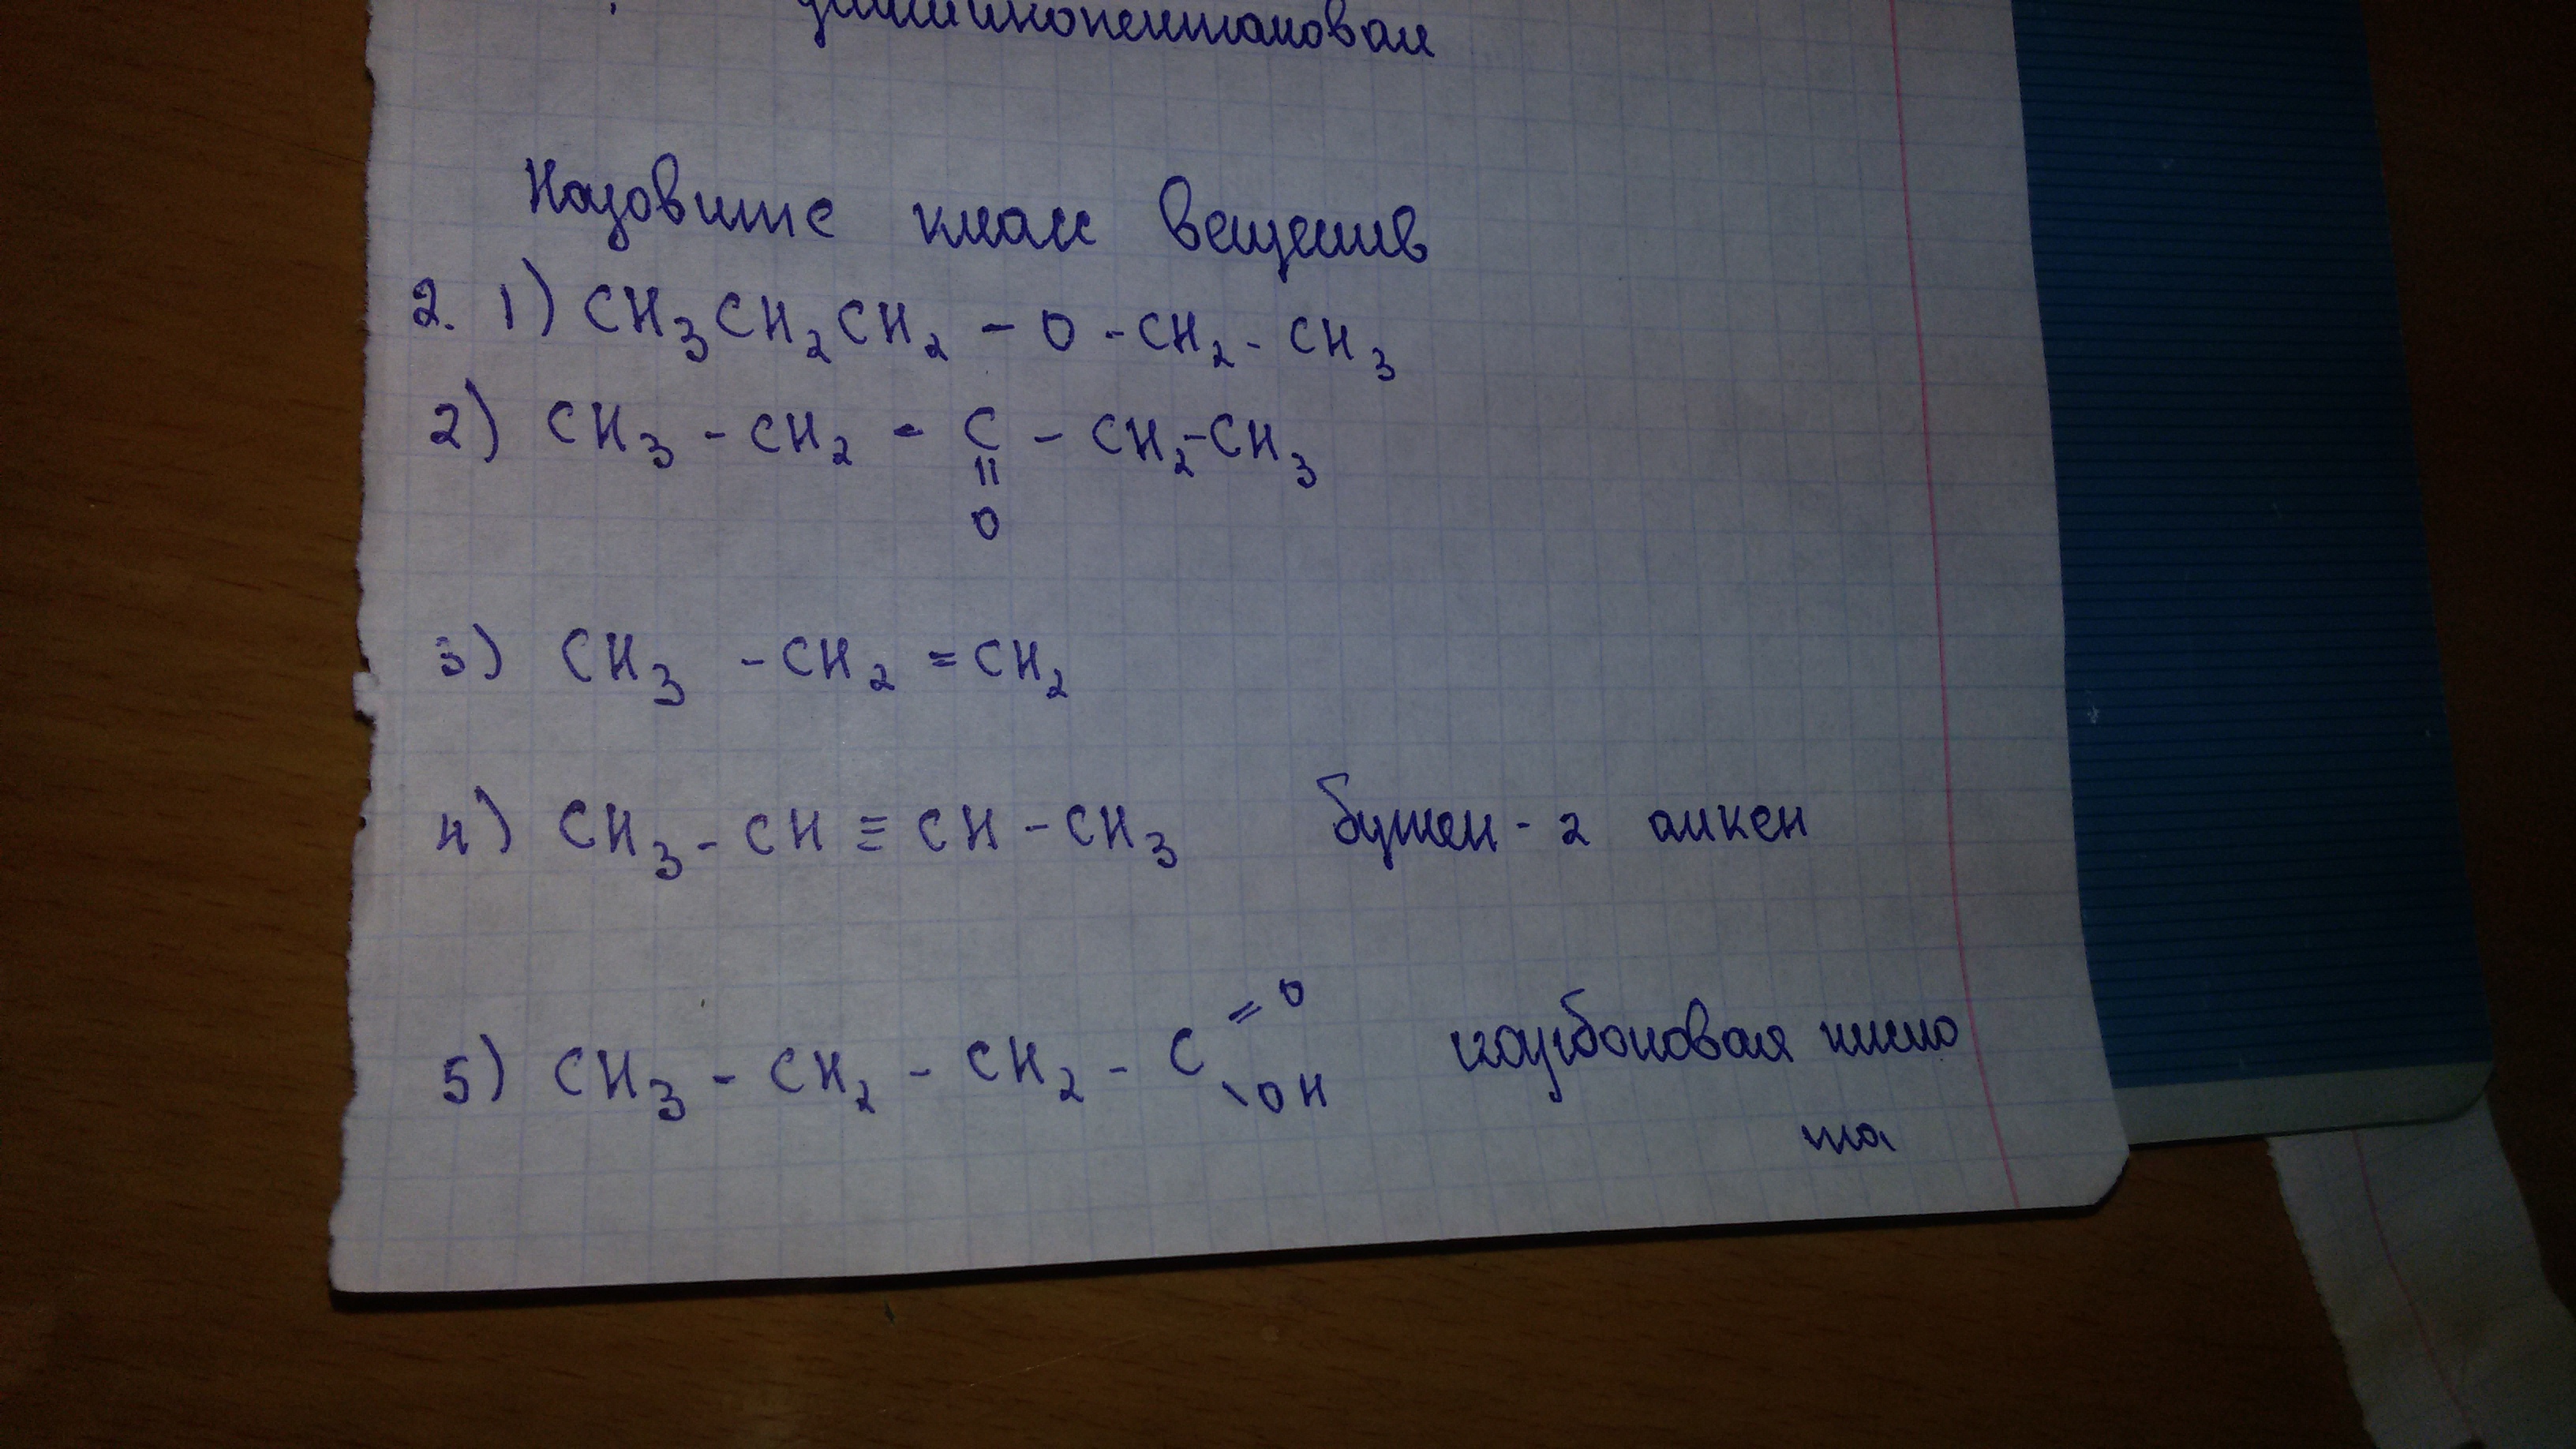 Назовите класс веществ
2. 1) CH3CH2CH2 - O - CH2 - CH3
2) CH3 - CH2 - C - CH2 - CH3
||
O
3) CH3 - CH2 = CH2
4) CH3 - CH ≡ CH - CH3 бутен - 2 алкен
5) CH3 - CH2 - CH2 - C = O
\ OH карбоновая кисло
та